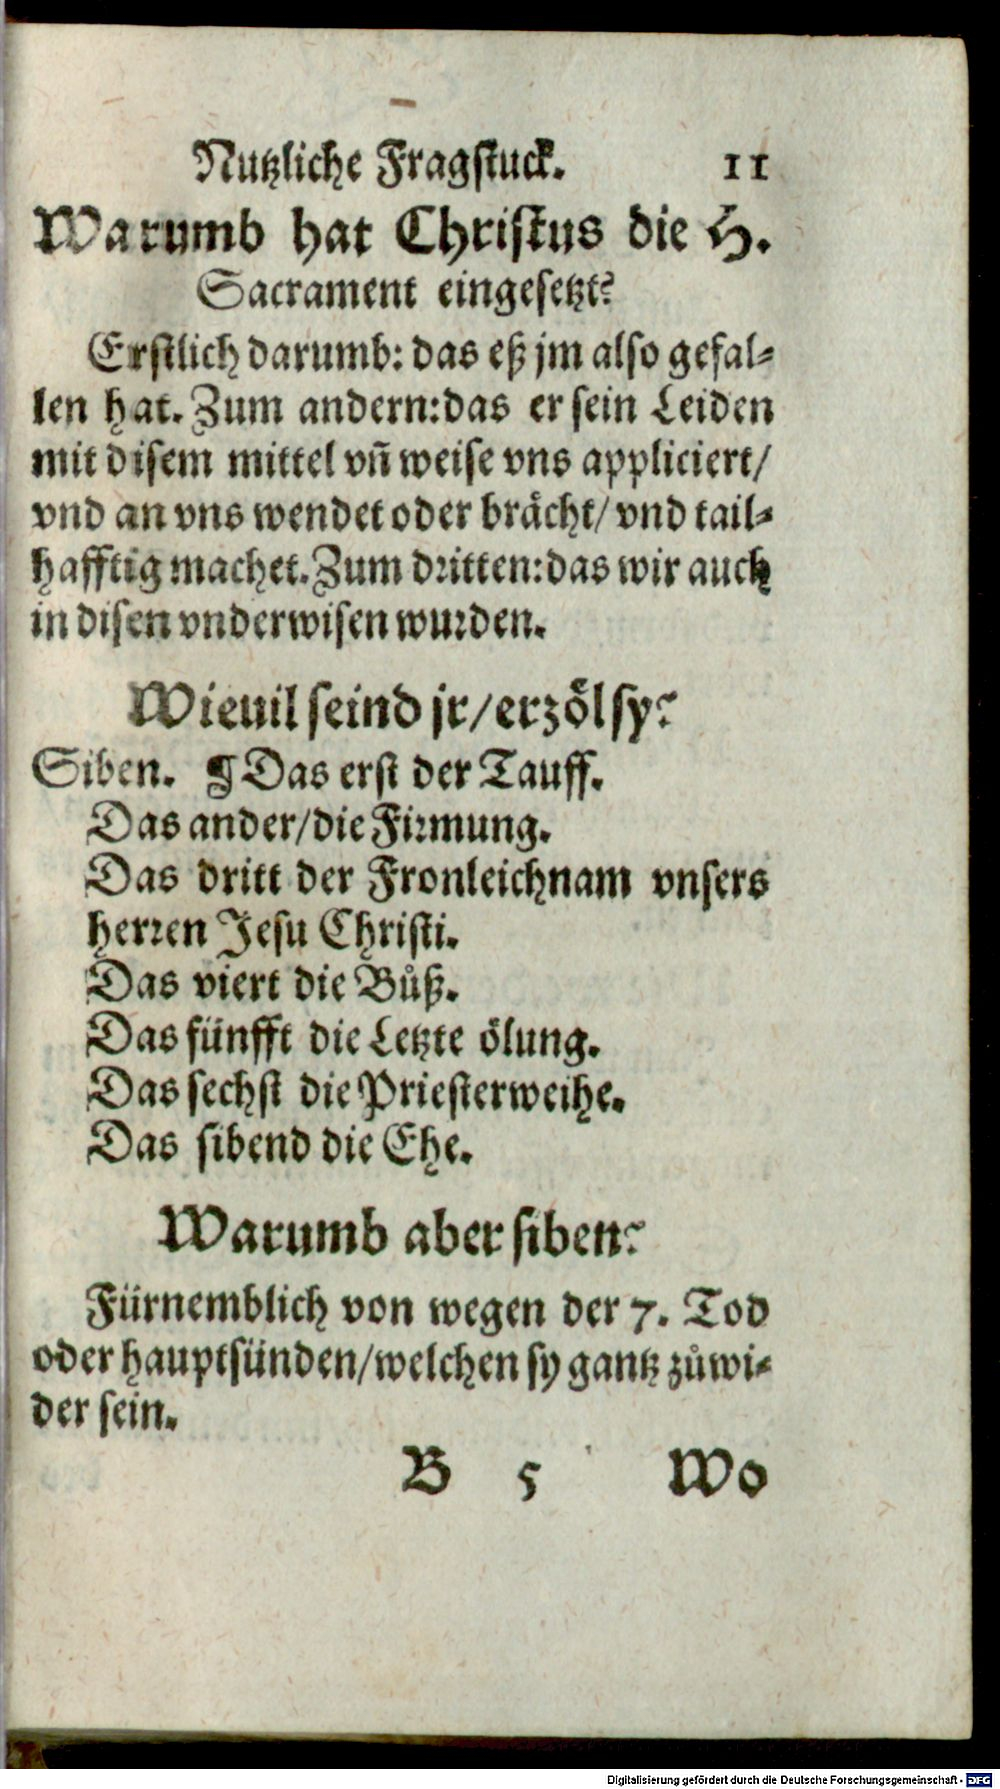 Nutzliche Fragstuck. 11
Warumb hat Christus die H.
Sacrament eingesetzt?
Erstlich darumb: das eß jm also gefal⸗
len hat. Zum andern: das er sein Leiden
mit disem mittel vñ weise vns appliciert/
vnd an vns wendet oder brächt/ vnd tail⸗
hafftig machet. Zum dritten: das wir auch
in disen vnderwisen wurden.
Wieuil seind jr/ erzöl sy?
Siben. ¶ Das erst der Tauff.
Das ander/ die Firmung.
Das dritt der Fronleichnam vnsers
herren Jesu Christi.
Das viert die Bůß.
Das fünfft die Letzte ölung.
Das sechst die Priesterweihe.
Das sibend die Ehe.
Warumb aber siben?
Fürnemblich von wegen der 7. Tod
oder hauptsünden/ welchen sy gantz zůwi⸗
der sein.
B 5 Wo
Digitalisierung gefördert durch die Deutsche Forschungsgemeinschaft - DFG